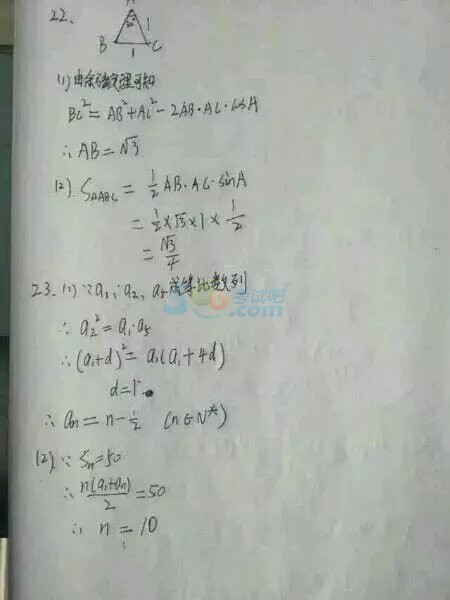 22.
A
30°
1
B
C
1
(1) 由余弦定理可知
BC²=AB²+AC²-2AB·AC·cosA
∴ AB=√3
(2). S△ABC = 1/2 AB·AC·sinA
= 1/2×√3×1×1/2
= √3/4
23. (1) ∵ a₁, a₂, a₅成等比数列
考试吧
.com
∴ a₂²=a₁·a₅
∴(a₁+d)²=a₁(a₁+4d)
d=1
∴ an=n-1/2 (n∈N*)
(2). ∵ Sn=50
∴ n(a₁+an)/2=50
∴ n=10